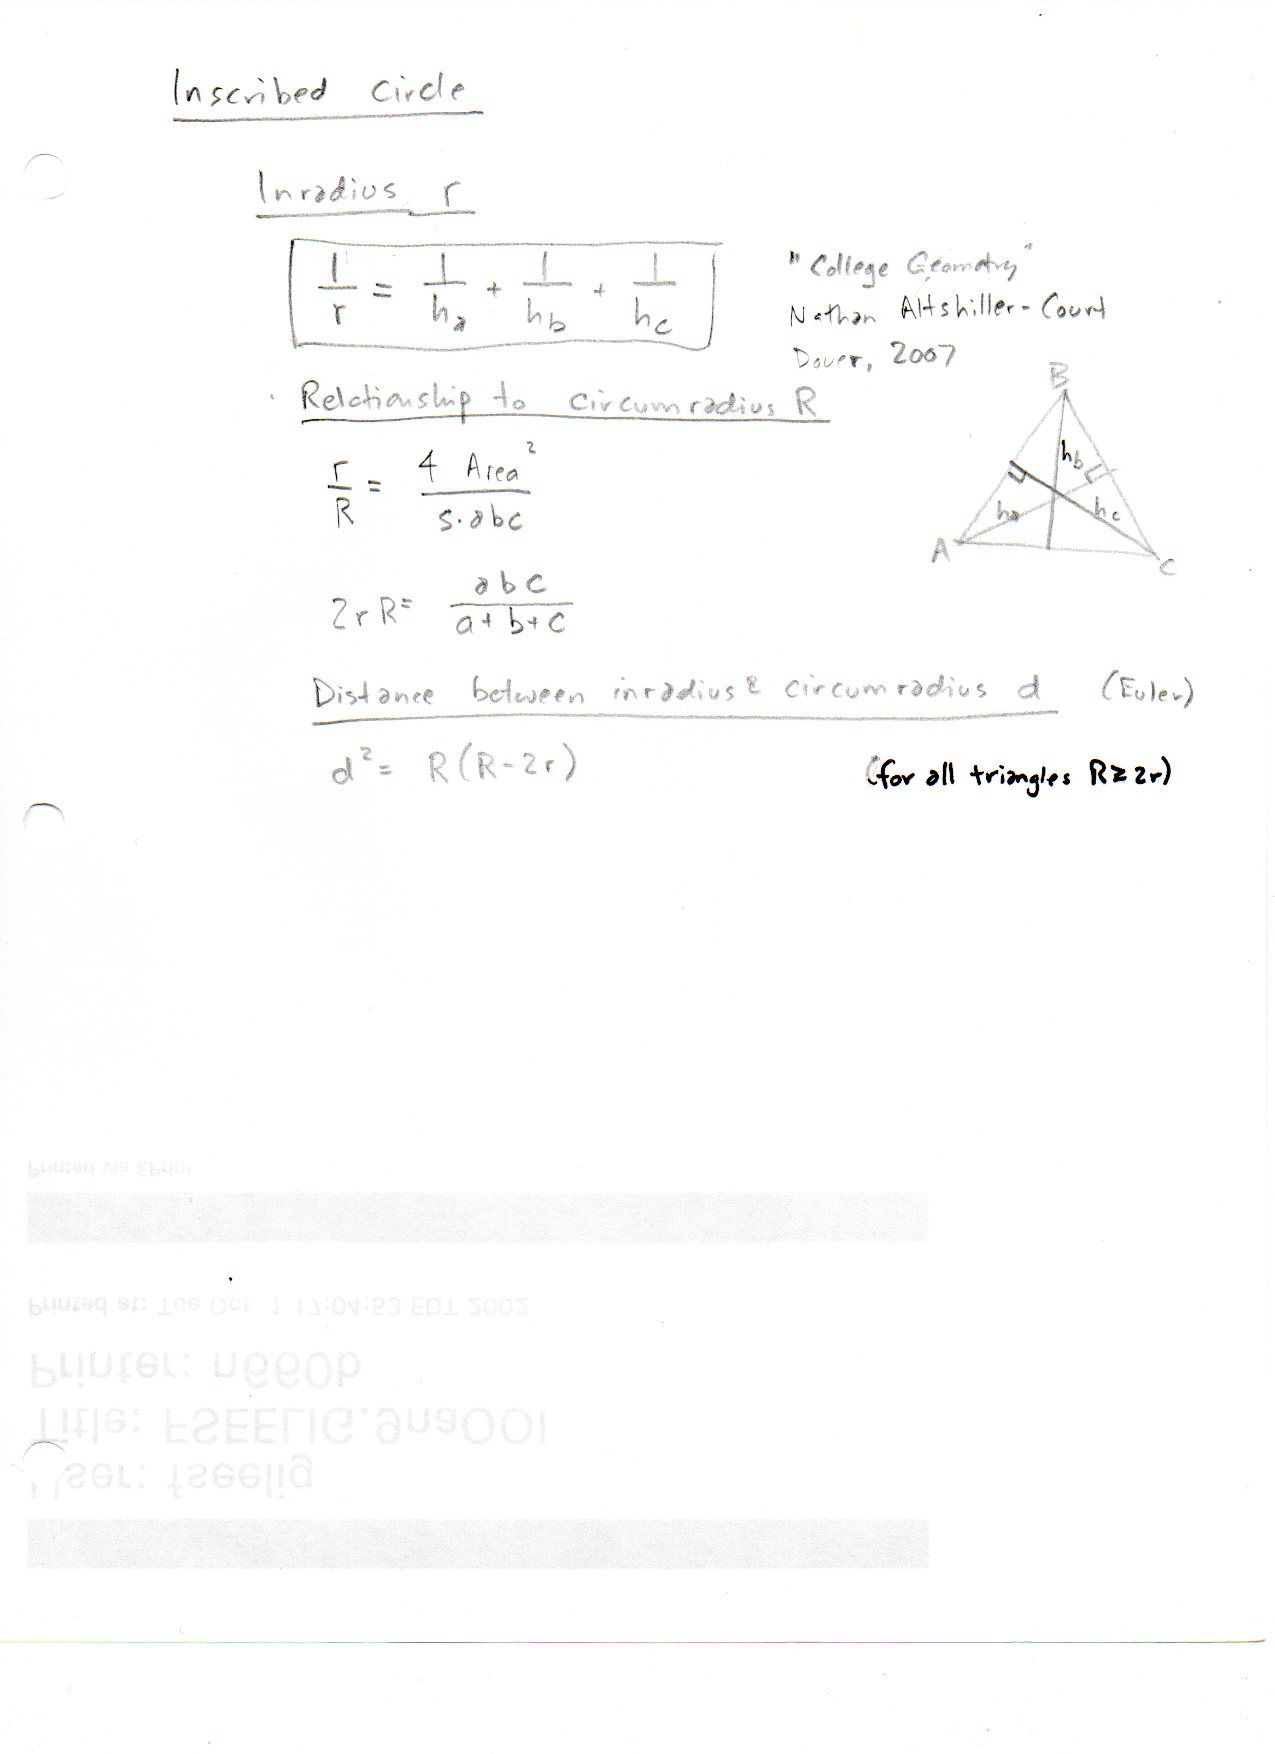 Inscribed Circle
Inradius r
1/r = 1/ha + 1/hb + 1/hc
"College Geometry"
Nathan Altshiller-Court
Dover, 2007
Relationship to circumradius R
r/R = 4 Area² / s·abc
B
hb
ha
hc
A
C
2rR = abc / a+b+c
Distance between inradius & circumradius d (Euler)
d² = R(R-2r)
(for all triangles R≥2r)
Printed via EPrint
Printed at: Tue Oct 1 17:04:53 EDT 2002
Printer: n660b
Title: FSEELIG.9naOOI
User: fseelig